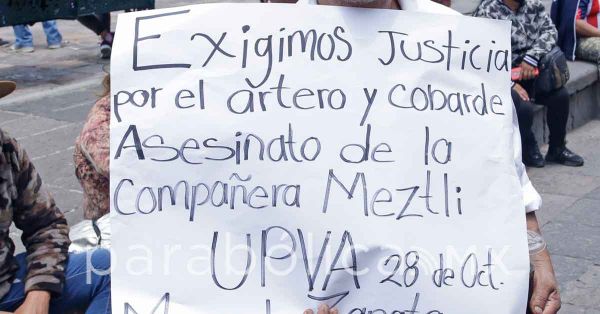 Exigimos Justicia
por el artero y cobarde
Asesinato de la
Compañera Meztli
UPVA 28 de Oct.
parabólica.mx